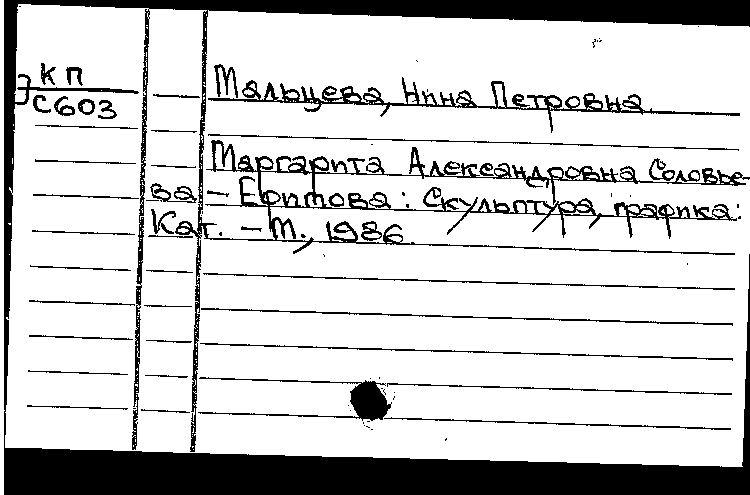 КП
С603
Мальцева, Нина Петровна.
Маргарита Александровна Соловье-
ва - Ефимова: Скульптура, графика:
Кат. - М., 1986.